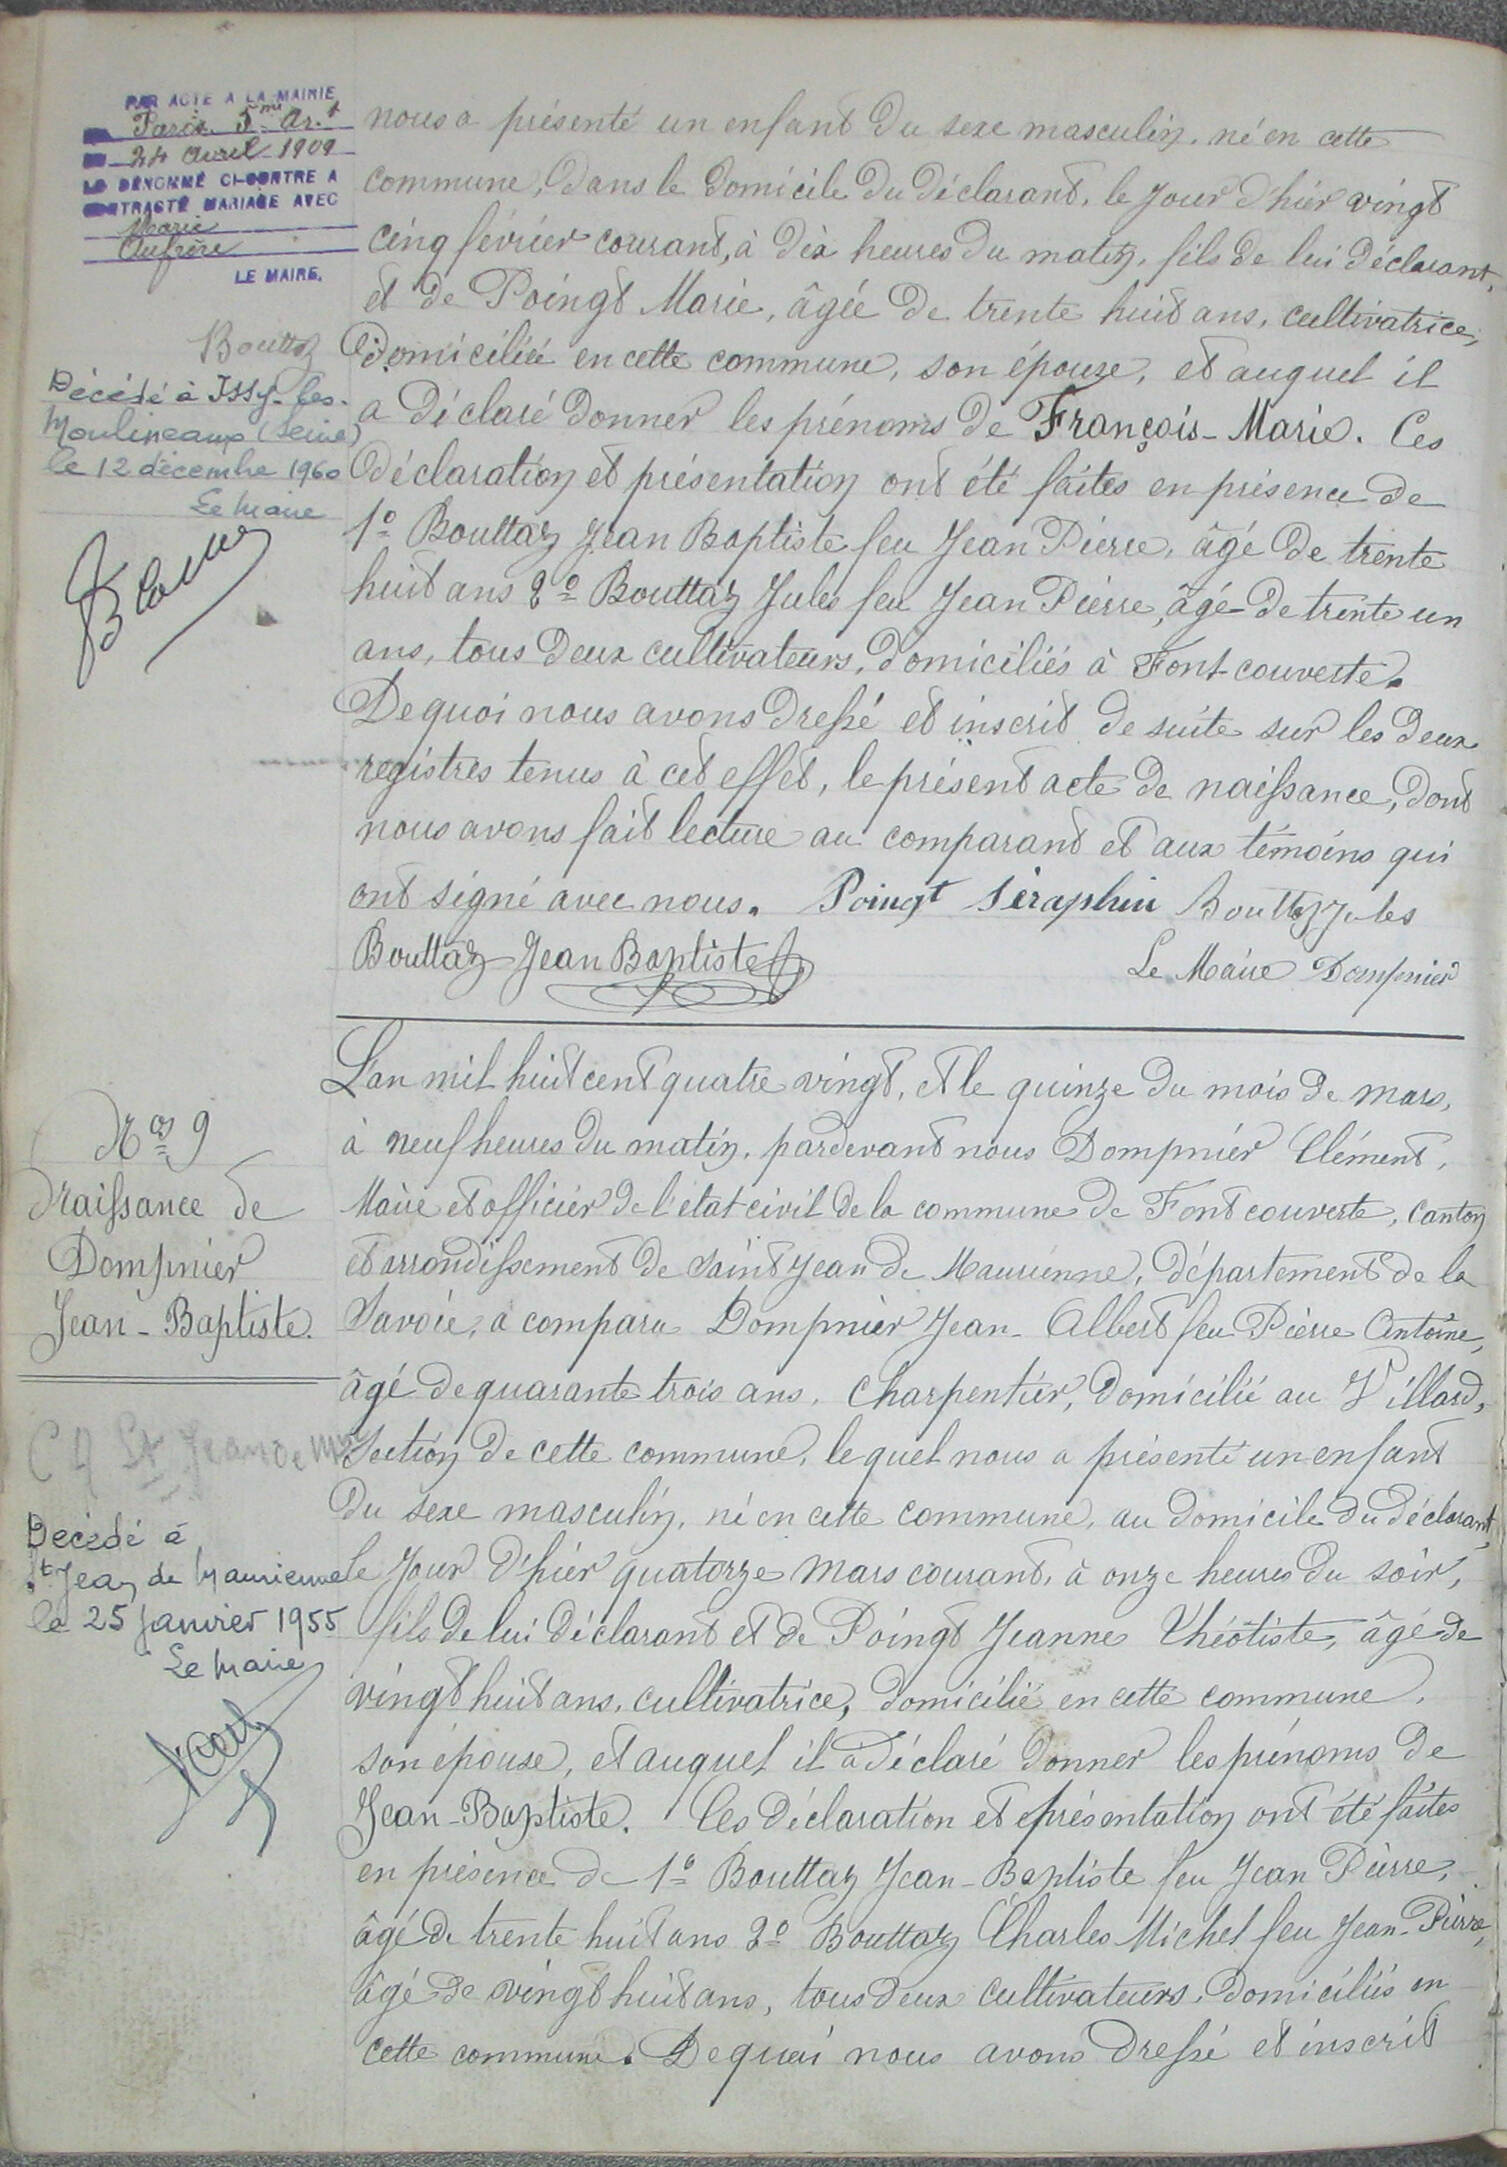 PAR ACTE A LA MAIRIE
Paris 5me Ar.t
24 Avril 1909
LE DÉNOMMÉ CI-CONTRE A
CONTRACTÉ MARIAGE AVEC
Marie
Aufrère
LE MAIRE.
Bouttaz
Décédé à Issy-les-
Moulineaux (Seine)
le 12 décembre 1960
Le Maire
nous a présenté un enfant du sexe masculin, né en cette
commune, dans le domicile du déclarant, le jour d'hier vingt
cinq février courant, à dix heures du matin, fils de lui déclarant,
et de Poingt Marie, âgée de trente huit ans, cultivatrice,
domiciliée en cette commune, son épouse, et auquel il
a déclaré donner les prénoms de François-Marie. Ces
déclaration et présentation ont été faites en présence de
1º Bouttaz Jean Baptiste feu Jean Pierre, âgé de trente
huit ans 2º Bouttaz Jules feu Jean Pierre, âgé de trente un
ans, tous deux cultivateurs, domiciliés à Font-couverte.
De quoi nous avons dressé et inscrit de suite sur les deux
registres tenus à cet effet, le présent acte de naissance, dont
nous avons fait lecture au comparant et aux témoins qui
ont signé avec nous. Poingt Séraphin Bouttaz Jules
Bouttaz Jean Baptiste Le Maire Dompnier
Nos 9
Naissance de
Dompnier
Jean-Baptiste.
C 9 St Jean de Mne
Décédé à
St Jean de Maurienne
le 25 Janvier 1955
Le Maire
L'an mil huit cent quatre vingt, et le quinze du mois de mars,
à neuf heures du matin, pardevant nous Dompnier Clément,
Maire et officier de l'état-civil de la commune de Fontcouverte, canton
et arrondissement de Saint Jean de Maurienne, département de la
Savoie, a comparu Dompnier Jean-Albert feu Pierre Antoine,
âgé de quarante trois ans, charpentier, domicilié au Villard,
section de cette commune, lequel nous a présenté un enfant
du sexe masculin, né en cette commune, au domicile du déclarant,
le jour d'hier quatorze mars courant, à onze heures du soir,
fils de lui déclarant et de Poingt Jeanne Théotiste, âgé de
vingt huit ans, cultivatrice, domicilié en cette commune,
son épouse, et auquel il a déclaré donner les prénoms de
Jean-Baptiste. Ces déclaration et présentation ont été faites
en présence de 1º Bouttaz Jean-Baptiste feu Jean Pierre,
âgé de trente huit ans 2º Bouttaz Charles Michel feu Jean-Pierre,
âgé de vingt huit ans, tous deux cultivateurs, domiciliés en
cette commune. De quoi nous avons dressé et inscrit